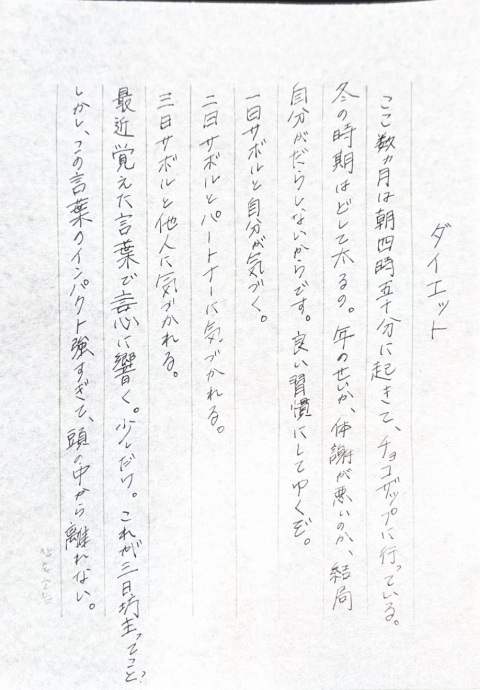 ダイエット
ここ数ヵ月は朝四時五十分に起きて、チョコザップに行っている。
冬の時期はどして太るの。年のせいか、体謝が悪いのか、結局
自分がだらしないからです。良い習慣にしてゆくぞ。
一日サボルと自分が気づく。
二日サボルとパートナーに気づかれる。
三日サボルと他人に気づかれる。
最近覚えた言葉で妄心に響く。少しだけ。これが三日坊主ってこと?
しかし、この言葉のインパクト強すぎて、頭の中から離れない。